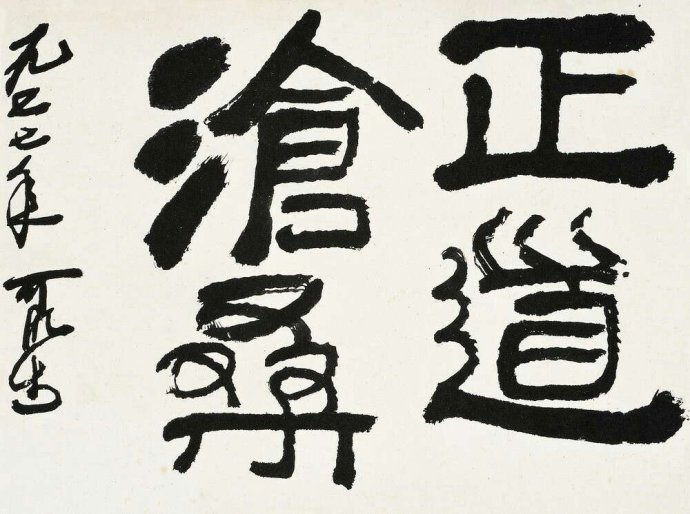 正道
滄桑
一九七七年 可染书